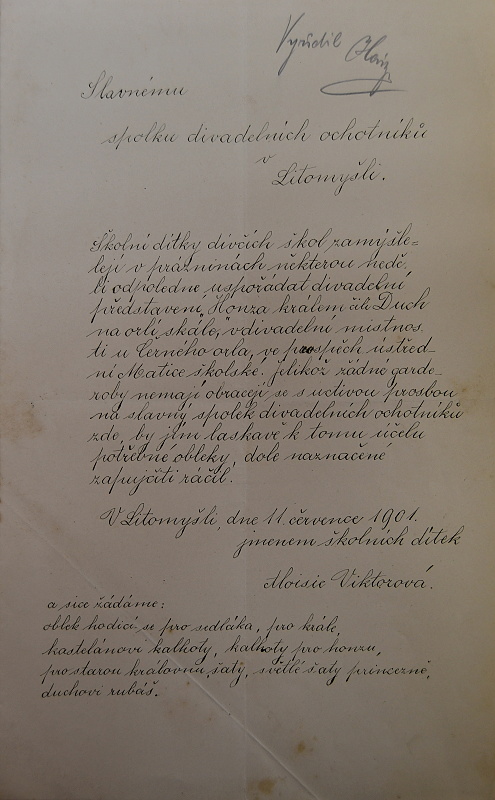 Vyřídil
Slavnému
spolku divadelních ochotníků
v
Litomyšli.
Školní dítky dívčích škol zamýšle-
lejí v prázninách některou nedě-
li odpoledne uspořádat divadelní
představení „Honza králem čili Duch
na orlí skále,“ v divadelní místnos-
ti u Černého orla, ve prospěch ústřed-
ní Matice školské. Jelikož žádné garde-
roby nemají obracejí se s uctivou prosbou
na slavný spolek divadelních ochotníků
zde, by jim laskavě k tomu účelu
potřebné obleky, dole naznačené
zapujčiti ráčil.
V Litomyšli, dne 11. července 1901.
jmenem školních dítek
Aloisie Viktorová.
a sice žádáme:
oblek hodicí se pro sedláka, pro krále,
kastelánovi kalhoty, kalhoty pro honzu,
pro starou královnu šaty, světlé šaty princezně,
duchovi rubáš.